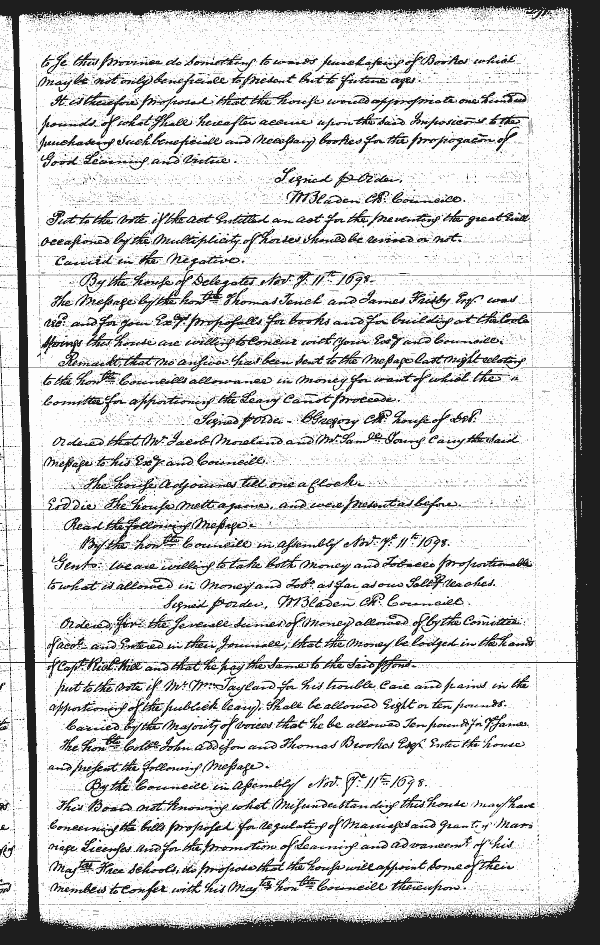 to Je this province do something towards purchaseing of Bookes which
may be not only beneficiale to present but to future ages.
It is therefore proposed that the house would appropriate one hundred
pounds of what shall hereafter accrue upon the said Imposicons to the
purchasing such beneficiall and necessary bookes for the propogacon of
Good Learning and Virtue.
Signed p Order.
W Bladen Cl. Councill.
Put to the Vote if the act Entitled an act for the preventing the great Evill
occasioned by the Multiplicity of horses should be revived or not.
Carried in the Negative.
By the house of Delegates Nov. ye 11th 1698.
The Message by the honble Thomas Tench and James Frisby Esqr was
recd. and for your Exy's proposalls for books and for building at the Coole
Springs this house are willing to concur with your Exy and Councill.
Remarks, that no answer has been sent to the Message last night relating
to the honble Councills allowance in money for want of which the
Comittee for apportioning the Leavy Canot proceede.
Signed p Order - C Gregory Cl. house of Del.
Ordered that Mr. Jacob Moreland and Mr. Samll Young Carry the said
Message to his Exy and Councill.
The house Adjournes till one a Clock.
Eod die The house mett againe, and were present as before.
Read the following Message.
By the honble Councill in Assembly Nov. ye 11th 1698.
Gents: we are willing to take both Money and Tobacco proportionable
to what is allowed in Money and Tob. as far as our reaches.
Signed p Order, W Bladen Cl. Councill.
Ordered, for the severall sumes of Money allowed of by the Comittee
of acots. and Entred in their Journall, that the Money be lodged in the hands
of Capt. Richd. Hill and that he pay the same to the said p sons.
put to the vote if Mr. Wm Tayland for his trouble Care and pains in the
apportioning of the publick leavy, shall be allowed Eight or ten pounds.
Carried by the Majority of voices that he be allowed Ten pounds for ye same
The honble Colle. John addison and Thomas Brookes Esqr. Enter the house
and present the following Message.
By the Councill in Assembly Nov. ye 11th 1698.
This Board not knowing what Misunderstanding this house may have
Concerning the bills proposed for regulating of Marriages and grant of Marri
riage Licenses and for the promotion of Learning and advancemt. of his
Majtys Free Schools, do propose that the house will appoint some of their
members to Confer with his Majtys honble Councill thereupon.